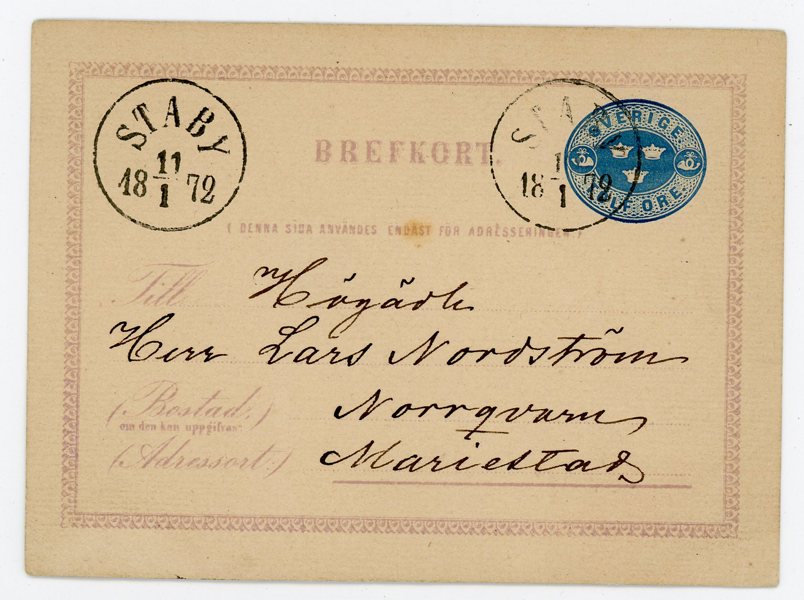 STABY
11
18 72
1
STABY
1
18 72
1
SVERIGE
TOLF ÖRE.
BREFKORT.
( DENNA SIDA ANVÄNDES ENDAST FÖR ADRESSERINGEN. )
Till Högädle
Herr Lars Nordström
(Bostad.) Norrqvarn
om den kan uppgifvas
(Adressort.) Mariestad